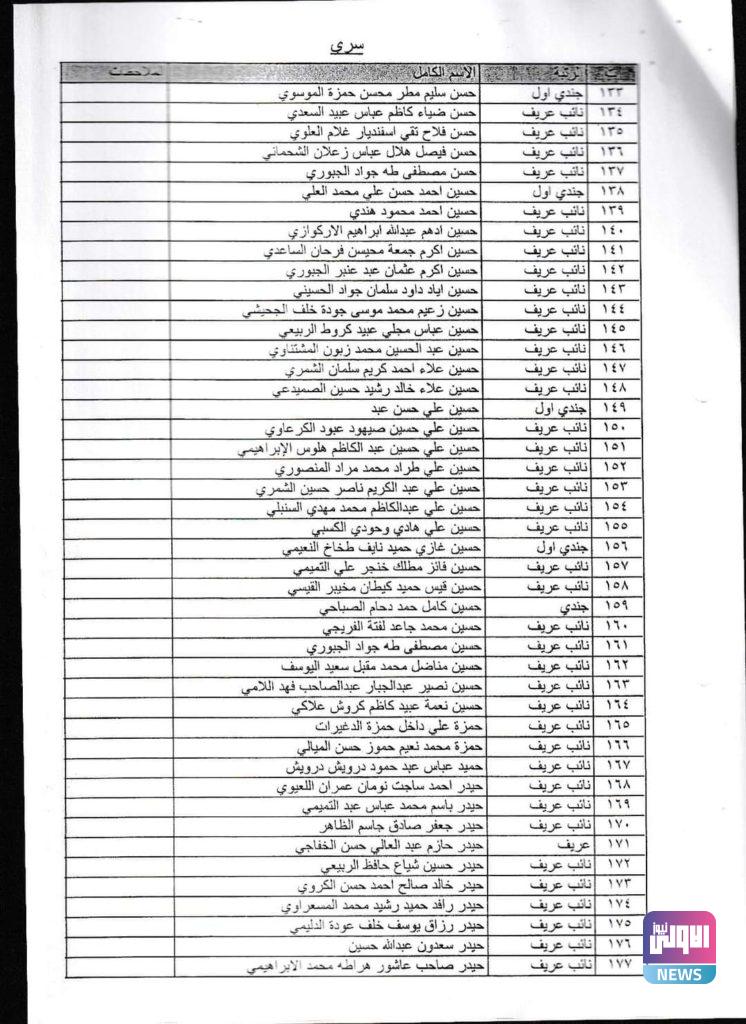 سري
ت الرتبة الاسم الكامل الملاحظات
١٣٣ جندي اول حسن سليم مطر محسن حمزة الموسوي
١٣٤ نائب عريف حسن ضياء كاظم عباس عبيد السعدي
١٣٥ نائب عريف حسن فلاح تقي اسفنديار غلام العلوي
١٣٦ نائب عريف حسن فيصل هلال عباس زعلان الشحماني
١٣٧ نائب عريف حسن مصطفى طه جواد الجبوري
١٣٨ جندي اول حسين احمد حسن علي محمد العلي
١٣٩ نائب عريف حسين احمد محمود هندي
١٤٠ نائب عريف حسين ادهم عبدالله ابراهيم الاركوازي
١٤١ نائب عريف حسين اكرم جمعة محيسن فرحان الساعدي
١٤٢ نائب عريف حسين اكرم عثمان عبد عنبر الجبوري
١٤٣ نائب عريف حسين اياد داود سلمان جواد الحسيني
١٤٤ نائب عريف حسين زعيم محمد موسى جودة خلف الجحيشي
١٤٥ نائب عريف حسين عباس مجلي عبيد كروط الربيعي
١٤٦ نائب عريف حسين عبد الحسين محمد زبون المشتناوي
١٤٧ نائب عريف حسين علاء احمد كريم سلمان الشمري
١٤٨ نائب عريف حسين علاء خالد رشيد حسين الصميدعي
١٤٩ جندي اول حسين علي حسن عبد
١٥٠ نائب عريف حسين علي حسين صيهود عبود الكرعاوي
١٥١ نائب عريف حسين علي حسين عبد الكاظم هلوس الإبراهيمي
١٥٢ نائب عريف حسين علي طراد محمد مراد المنصوري
١٥٣ نائب عريف حسين علي عبد الكريم ناصر حسين الشمري
١٥٤ نائب عريف حسين علي عبدالكاظم محمد مهدي السنبلي
١٥٥ نائب عريف حسين علي هادي وحودي الكسبي
١٥٦ جندي اول حسين غازي حميد نايف طخاخ النعيمي
١٥٧ نائب عريف حسين فائز مطلك خنجر علي التميمي
١٥٨ نائب عريف حسين قيس حميد كيطان مخيبر القيسي
١٥٩ جندي حسين كامل حمد دحام الصباحي
١٦٠ نائب عريف حسين محمد جاعد لفتة الفريجي
١٦١ نائب عريف حسين مصطفى طه جواد الجبوري
١٦٢ نائب عريف حسين مناضل محمد مقبل سعيد اليوسف
١٦٣ نائب عريف حسين نصير عبدالجبار عبدالصاحب فهد اللامي
١٦٤ نائب عريف حسين نعمة عبيد كاظم كروش علاكي
١٦٥ نائب عريف حمزة علي داخل حمزة الدغيرات
١٦٦ نائب عريف حمزة محمد نعيم حموز حسن الميالي
١٦٧ نائب عريف حميد عباس عبد حمود درويش درويش
١٦٨ نائب عريف حيدر احمد ساجت نومان عمران اللعيوي
١٦٩ نائب عريف حيدر باسم محمد عباس عبد التميمي
١٧٠ نائب عريف حيدر جعفر صادق جاسم الظاهر
١٧١ عريف حيدر حازم عبد العالي حسن الخفاجي
١٧٢ نائب عريف حيدر حسين شياع حافظ الربيعي
١٧٣ نائب عريف حيدر خالد صالح احمد حسن الكروي
١٧٤ نائب عريف حيدر رافد حميد رشيد محمد المسعراوي
١٧٥ نائب عريف حيدر رزاق يوسف خلف عودة الدليمي
١٧٦ نائب عريف حيدر سعدون عبدالله حسين
١٧٧ نائب عريف حيدر صاحب عاشور هراطه محمد الابراهيمي
الاولى نيوز
NEWS